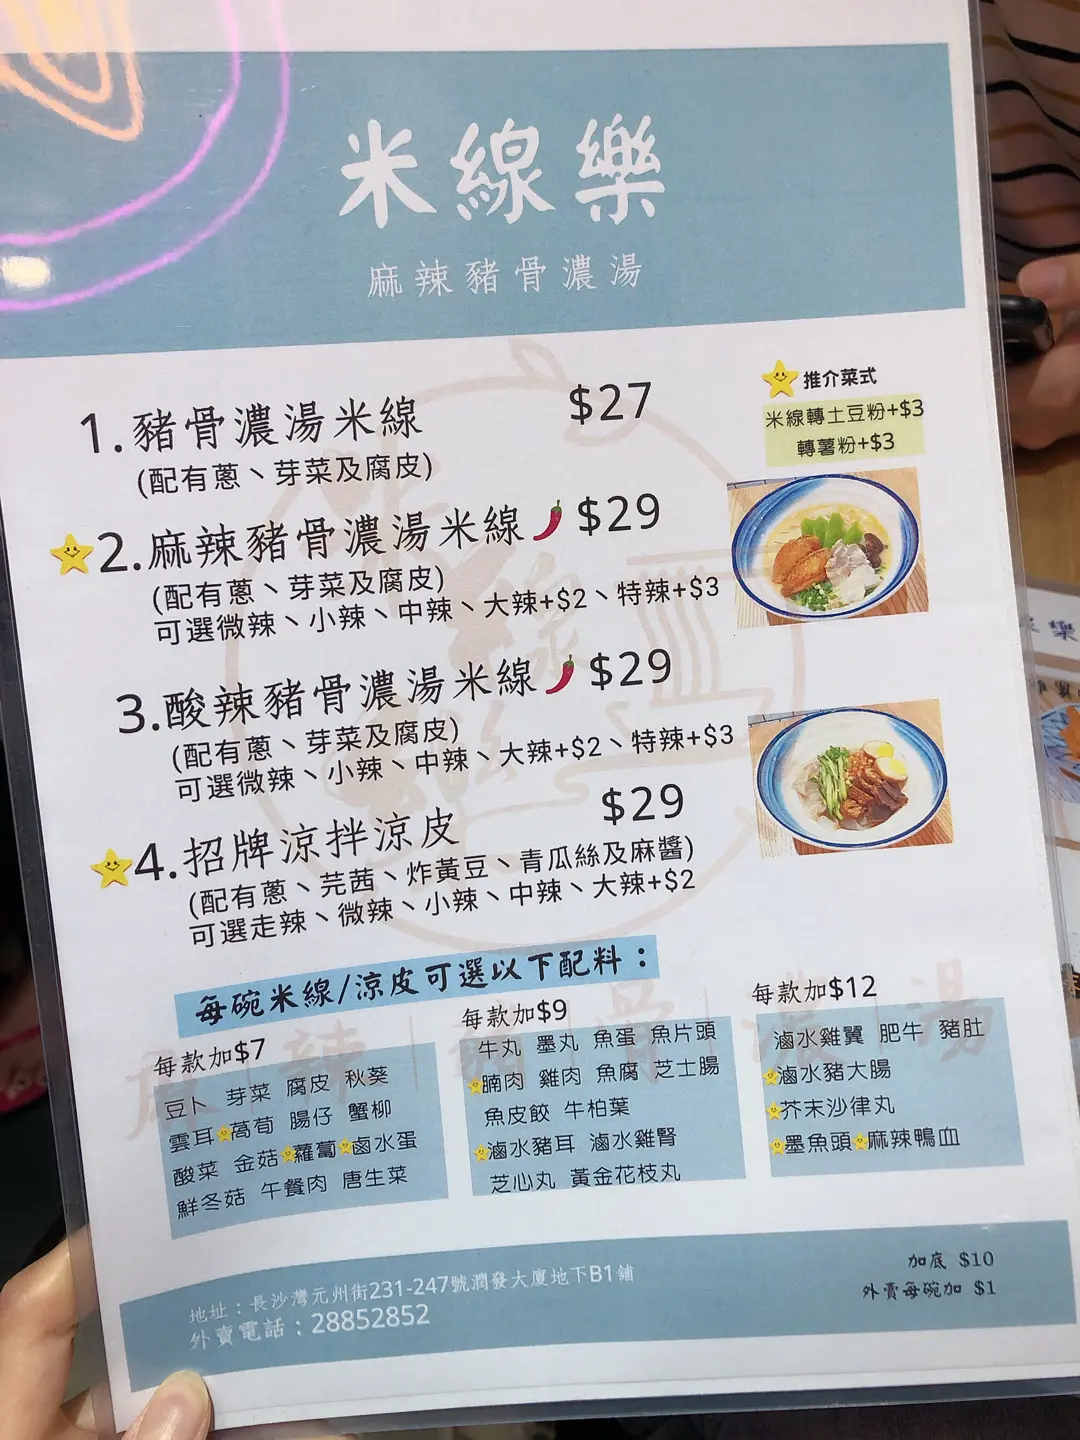 米線樂
麻辣豬骨濃湯
推介菜式
米線轉土豆粉+$3
轉薯粉+$3
1.豬骨濃湯米線 $27
(配有蔥、芽菜及腐皮)
2.麻辣豬骨濃湯米線 $29
(配有蔥、芽菜及腐皮)
可選微辣、小辣、中辣、大辣+$2、特辣+$3
3.酸辣豬骨濃湯米線 $29
(配有蔥、芽菜及腐皮)
可選微辣、小辣、中辣、大辣+$2、特辣+$3
4.招牌涼拌涼皮 $29
(配有蔥、芫茜、炸黃豆、青瓜絲及麻醬)
可選走辣、微辣、小辣、中辣、大辣+$2
每碗米線/涼皮可選以下配料：
每款加$7
豆卜 芽菜 腐皮 秋葵
雲耳 萵荀 腸仔 蟹柳
酸菜 金菇 蘿蔔 鹵水蛋
鮮冬菇 午餐肉 唐生菜
每款加$9
牛丸 墨丸 魚蛋 魚片頭
腩肉 雞肉 魚腐 芝士腸
魚皮餃 牛柏葉
滷水豬耳 滷水雞腎
芝心丸 黃金花枝丸
每款加$12
滷水雞翼 肥牛 豬肚
滷水豬大腸
芥末沙律丸
墨魚頭 麻辣鴨血
地址：長沙灣元州街231-247號潤發大廈地下B1鋪
外賣電話：28852852
加底 $10
外賣每碗加 $1